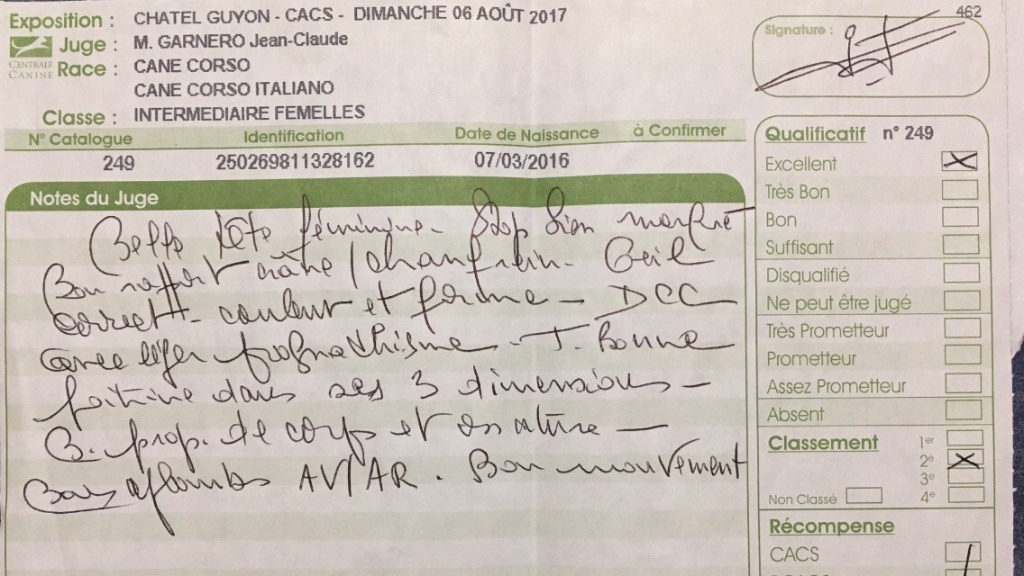 Exposition : CHATEL GUYON - CACS - DIMANCHE 06 AOÛT 2017
Juge : M. GARNERO Jean-Claude
CENTRALE CANINE
Race : CANE CORSO
CANE CORSO ITALIANO
Classe : INTERMEDIAIRE FEMELLES
N° Catalogue Identification Date de Naissance à Confirmer
249 250269811328162 07/03/2016
Notes du Juge
Belle tête féminine - Stop bien marqué
Bon rapport crâne / chanfrein - Oeil
correct - couleur et forme - DCC
avec léger prognathisme - T. Bonne
poitrine dans ses 3 dimensions -
B. prop. de corps et ossature -
Bons aplombs AV/AR. Bon mouvement
462
Signature :
Qualificatif n° 249
Excellent
Très Bon
Bon
Suffisant
Disqualifié
Ne peut être jugé
Très Prometteur
Prometteur
Assez Prometteur
Absent
Classement 1er
2e
3e
Non Classé 4e
Récompense
CACS